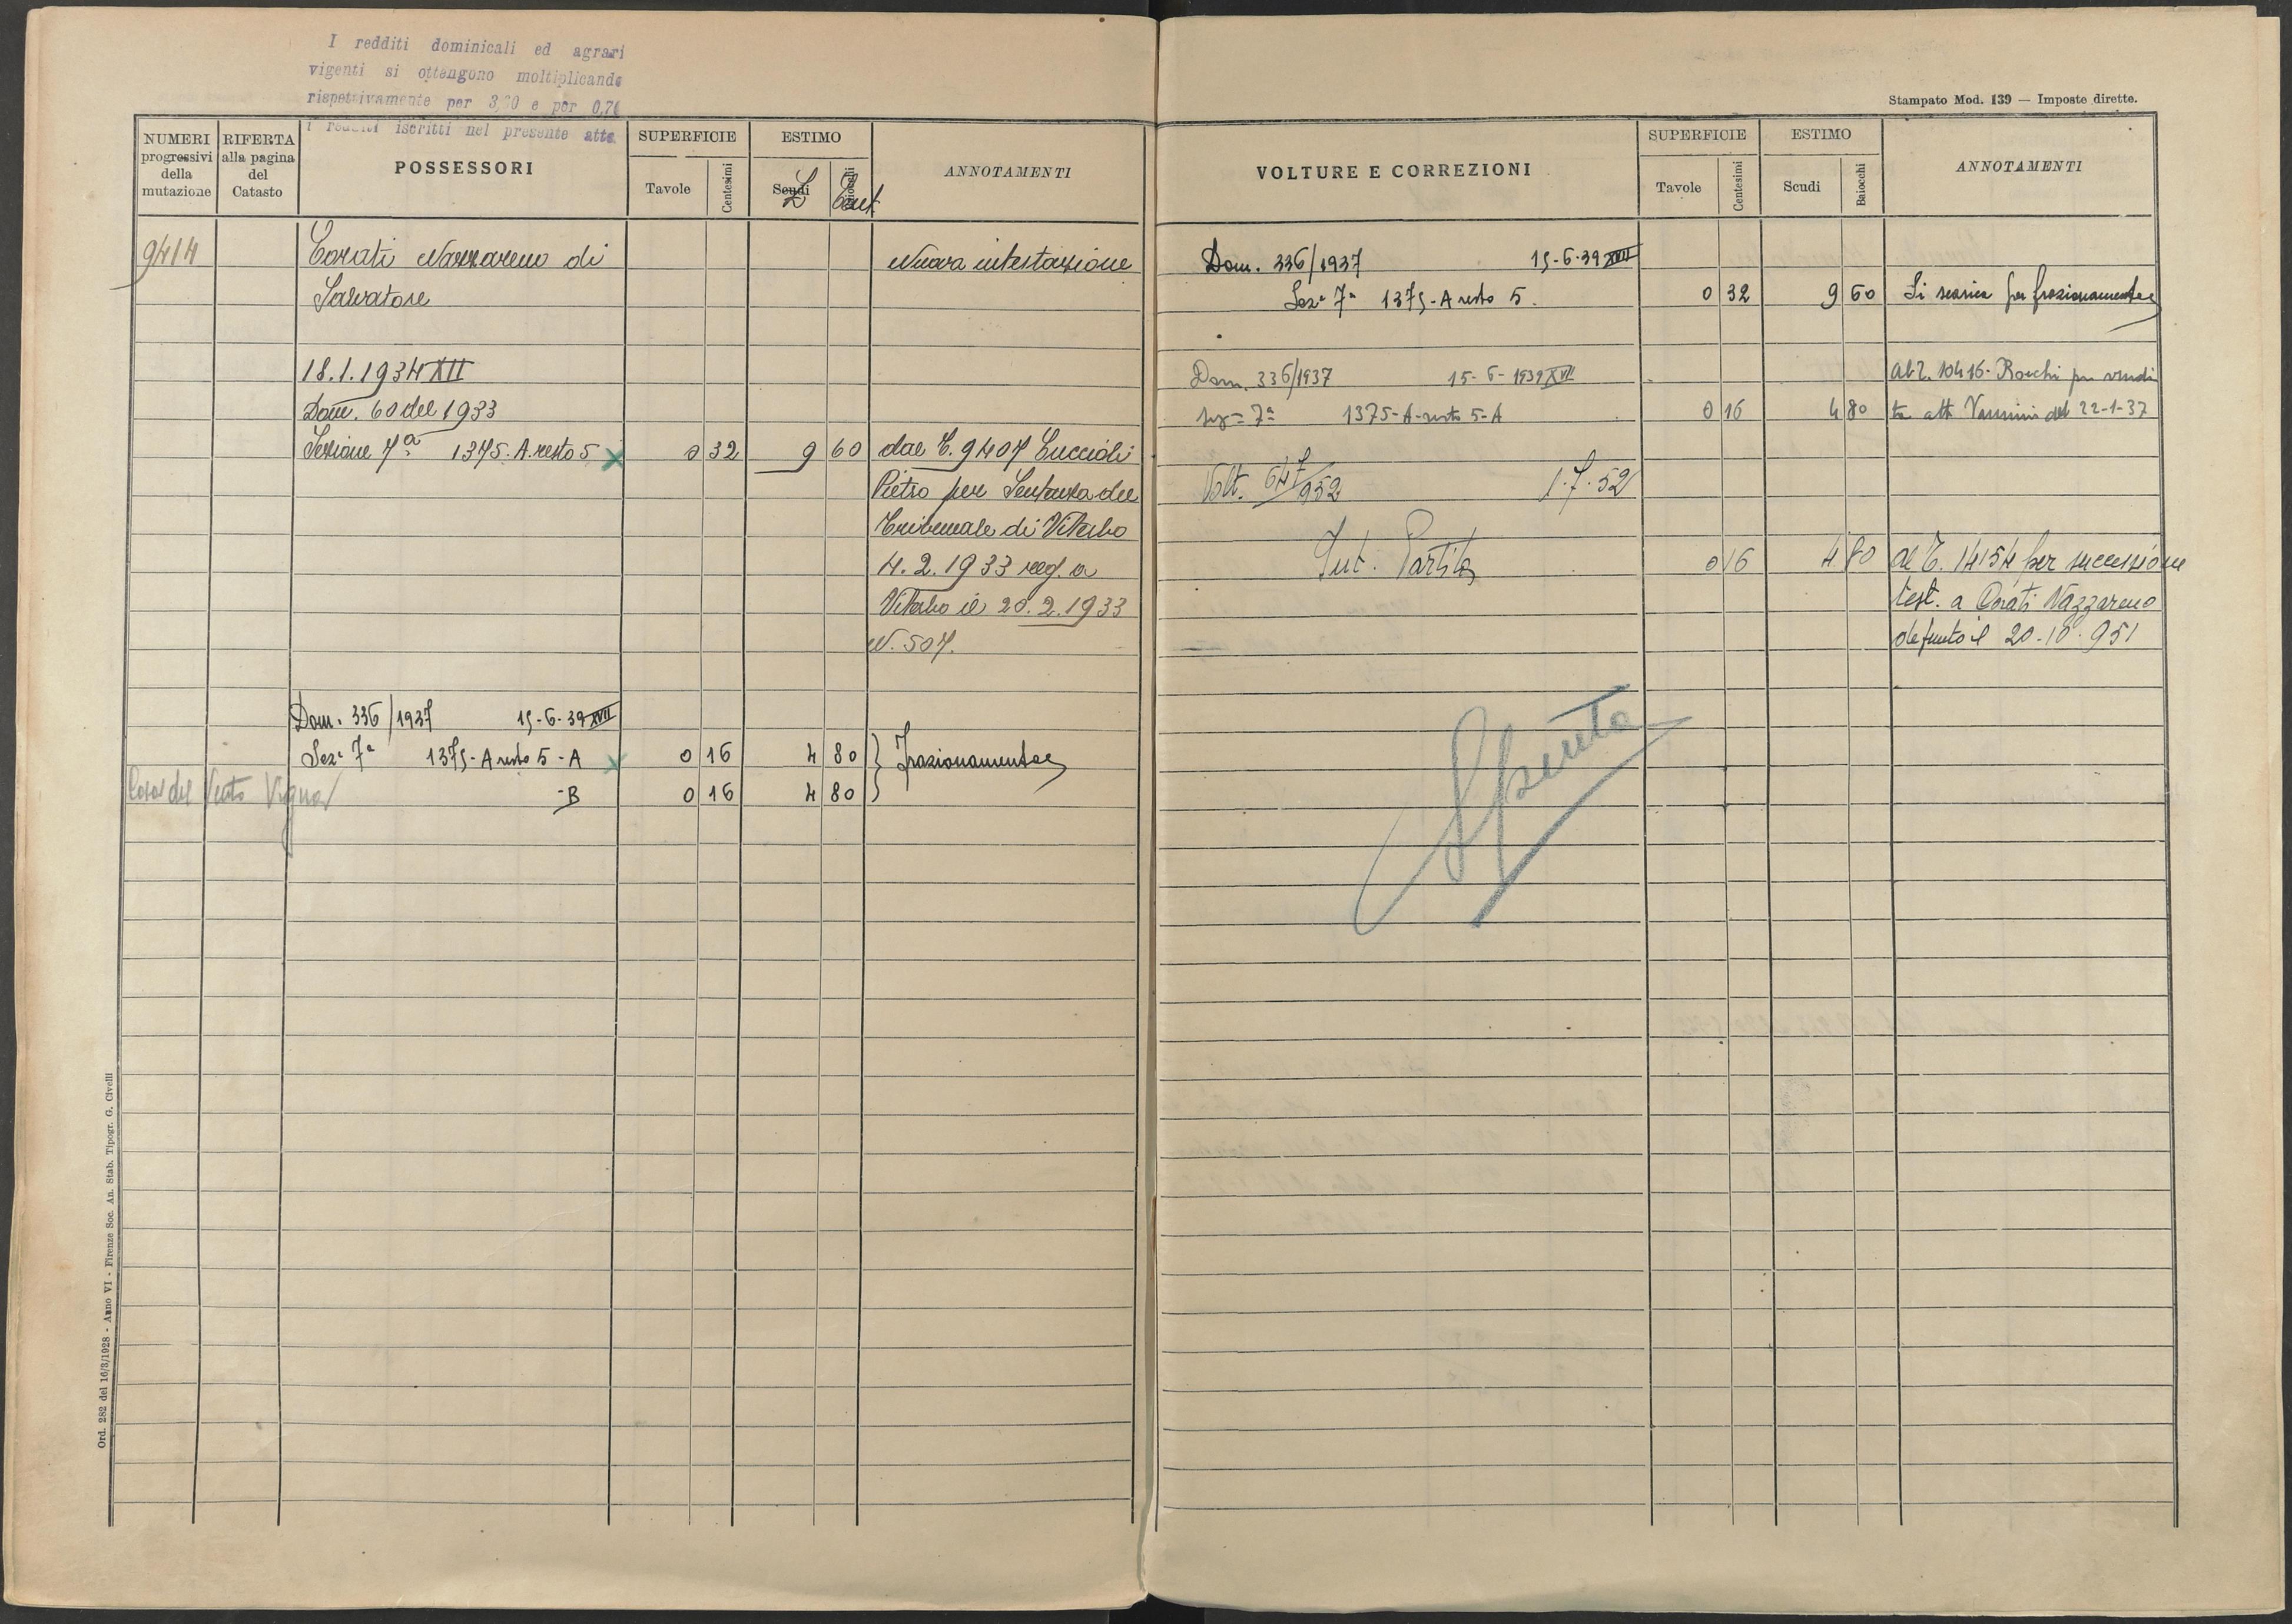 I redditi dominicali ed agrari
vigenti si ottengono moltiplicando
rispettivamente per 3,20 e per 0,70
i redditi iscritti nel presente atto
NUMERI progressivi della mutazione
RIFERTA alla pagina del Catasto
POSSESSORI
SUPERFICIE
Tavole
Centesimi
ESTIMO
Scudi
L
Cent
ANNOTAMENTI
9414
Corati Nazzareno di
Salvatore
Nuova intestazione
18.1.1934 XII
Dom. 60 del 1933
Sezione 7ª 1375-A resto 5 x 0 32 9 60 dal C. 9407 Luccioli
Pietro per Sentenza del
Tribunale di Viterbo
4.2.1933 reg. a
Viterbo il 20.2.1933
N. 507.
Dom. 336/1937 15-6-39 XVII
Sez. 7ª 1375-A resto 5-A x 0 16 4 80 Frazionamento
Vento Vigna -B 0 16 4 80
Ord. 282 del 16/3/1928 - Anno VI - Firenze Soc. An. Stab. Tipogr. G. Civelli
Stampato Mod. 139 — Imposte dirette.
VOLTURE E CORREZIONI
SUPERFICIE
Tavole
Centesimi
ESTIMO
Scudi
Baiocchi
ANNOTAMENTI
Dom. 336/1937 15-6-39 XVII
Sez. 7ª 1375-A resto 5. 0 32 9 60 Si scarica per frazionamento
Dom. 336/1937 15-6-1939 XVII al C. 10416 - Rocchi per vendi
sez = 7ª 1375-A-resto 5-A 0 16 4 80 ta att. del 22-1-37
Volt. 647/952 1.7.52
Int. Partita 0 16 4 80 al C. 14154 per successione
test. a Corati Nazzareno
defunto il 20-10-951
Spenta